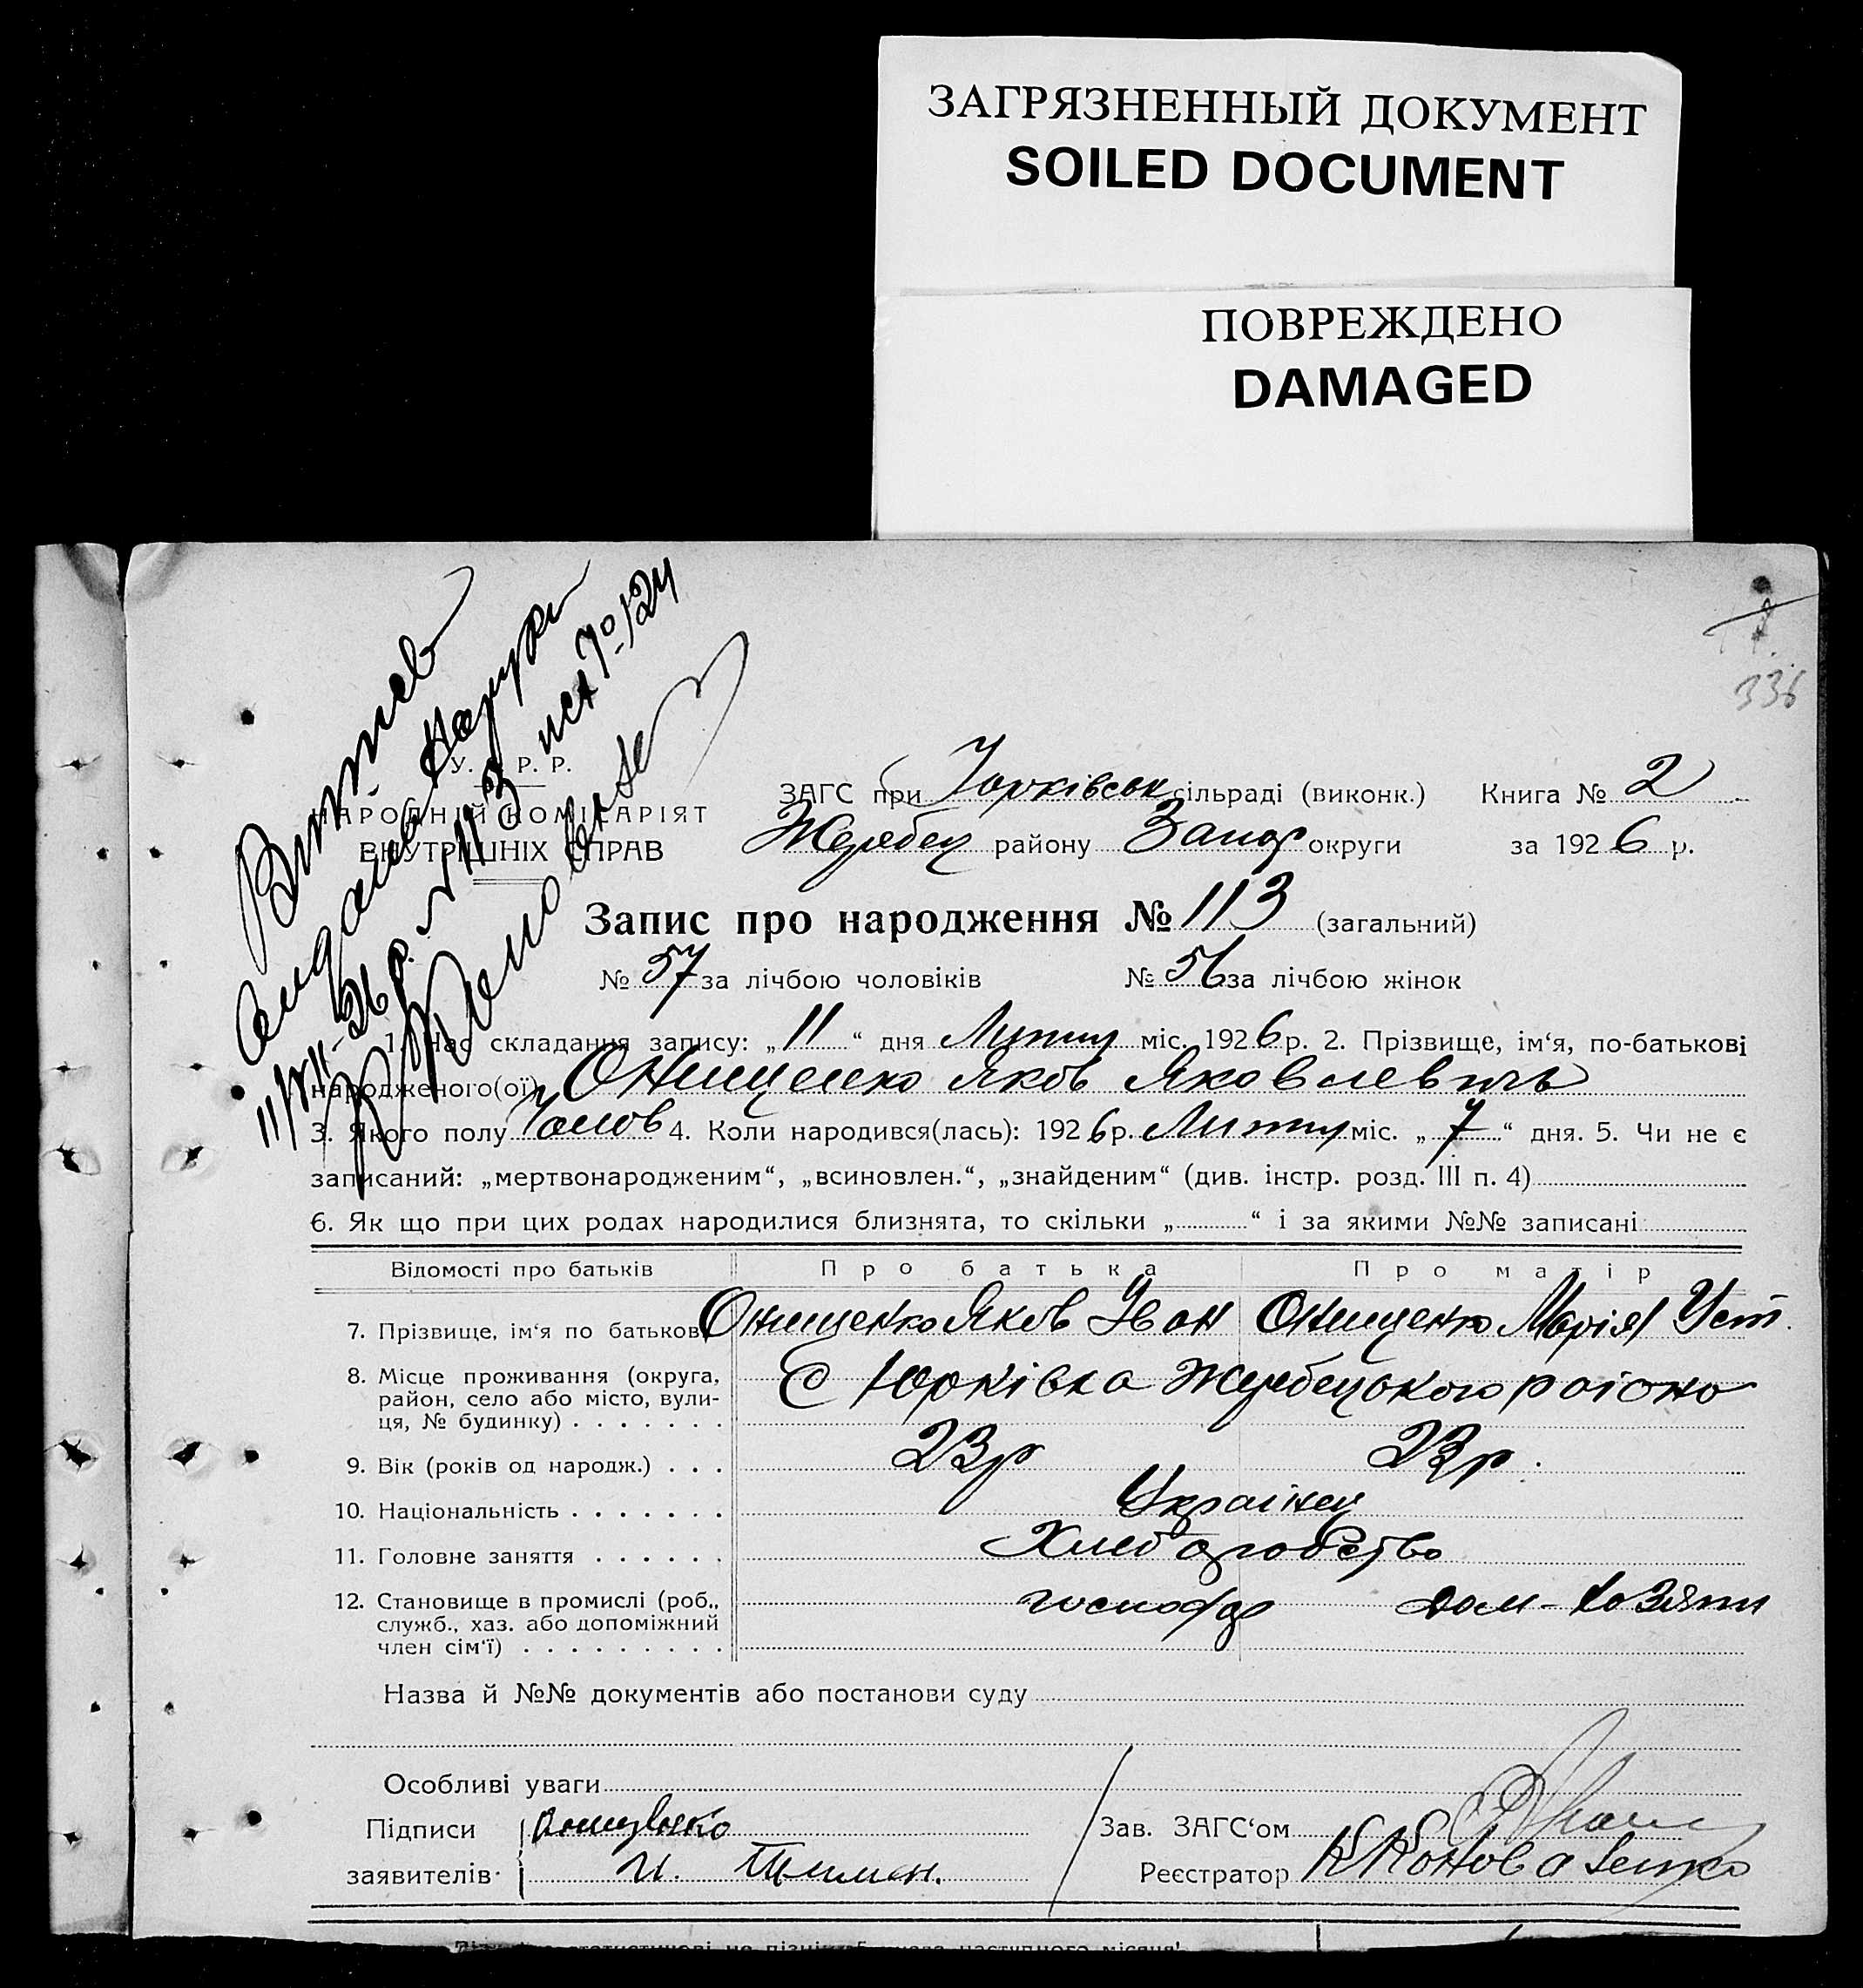 ЗАГРЯЗНЕННЫЙ ДОКУМЕНТ
SOILED DOCUMENT
ПОВРЕЖДЕНО
DAMAGED
336
У. Р. Р.
НАРОДНІЙ КОМІСАРІЯТ
ВНУТРІШНІХ СПРАВ
11/VIII-26 р. № 113
ЗАГС при Юрківськ сільраді (виконк.) Книга № 2
Жеребец району Запор округи за 1926 р.
Запис про народження № 113 (загальний)
№ 57 за лічбою чоловіків № 56 за лічбою жінок
1. Час складання запису: „11“ дня Лютий міс. 1926 р. 2. Прізвище, ім‘я, по-батькові
народженого(ої) Онищенко Яков Яковлевичь
3. Якого полу Чолов 4. Коли народився(лась): 1926 р. Лютий міс. „7“ дня. 5. Чи не є
записаний: „мертвонародженим“, „всиновлен.“, „знайденим“ (див. інстр. розд. III п. 4)
6. Як що при цих родах народилися близнята, то скільки „ “ і за якими №№ записані
Відомості про батьків Про батька Про матір
7. Прізвище, ім‘я по батькові Онищенко Яков Іван Онищенко Марія Уст.
8. Місце проживання (округа, район, село або місто, вулиця, № будинку) С Юрківка Жеребецького раіону
9. Вік (років од народж.) 23 р 23 р.
10. Національність Украінец
11. Головне заняття Хлеборобство
12. Становище в промислі (роб., служб., хаз. або допоміжний член сім‘ї) господр дом-хозяти
Назва й №№ документів або постанови суду
Особливі уваги
Підписи Онищенко Зав. ЗАГС‘ом
заявителів Реєстратор К Коноваленко